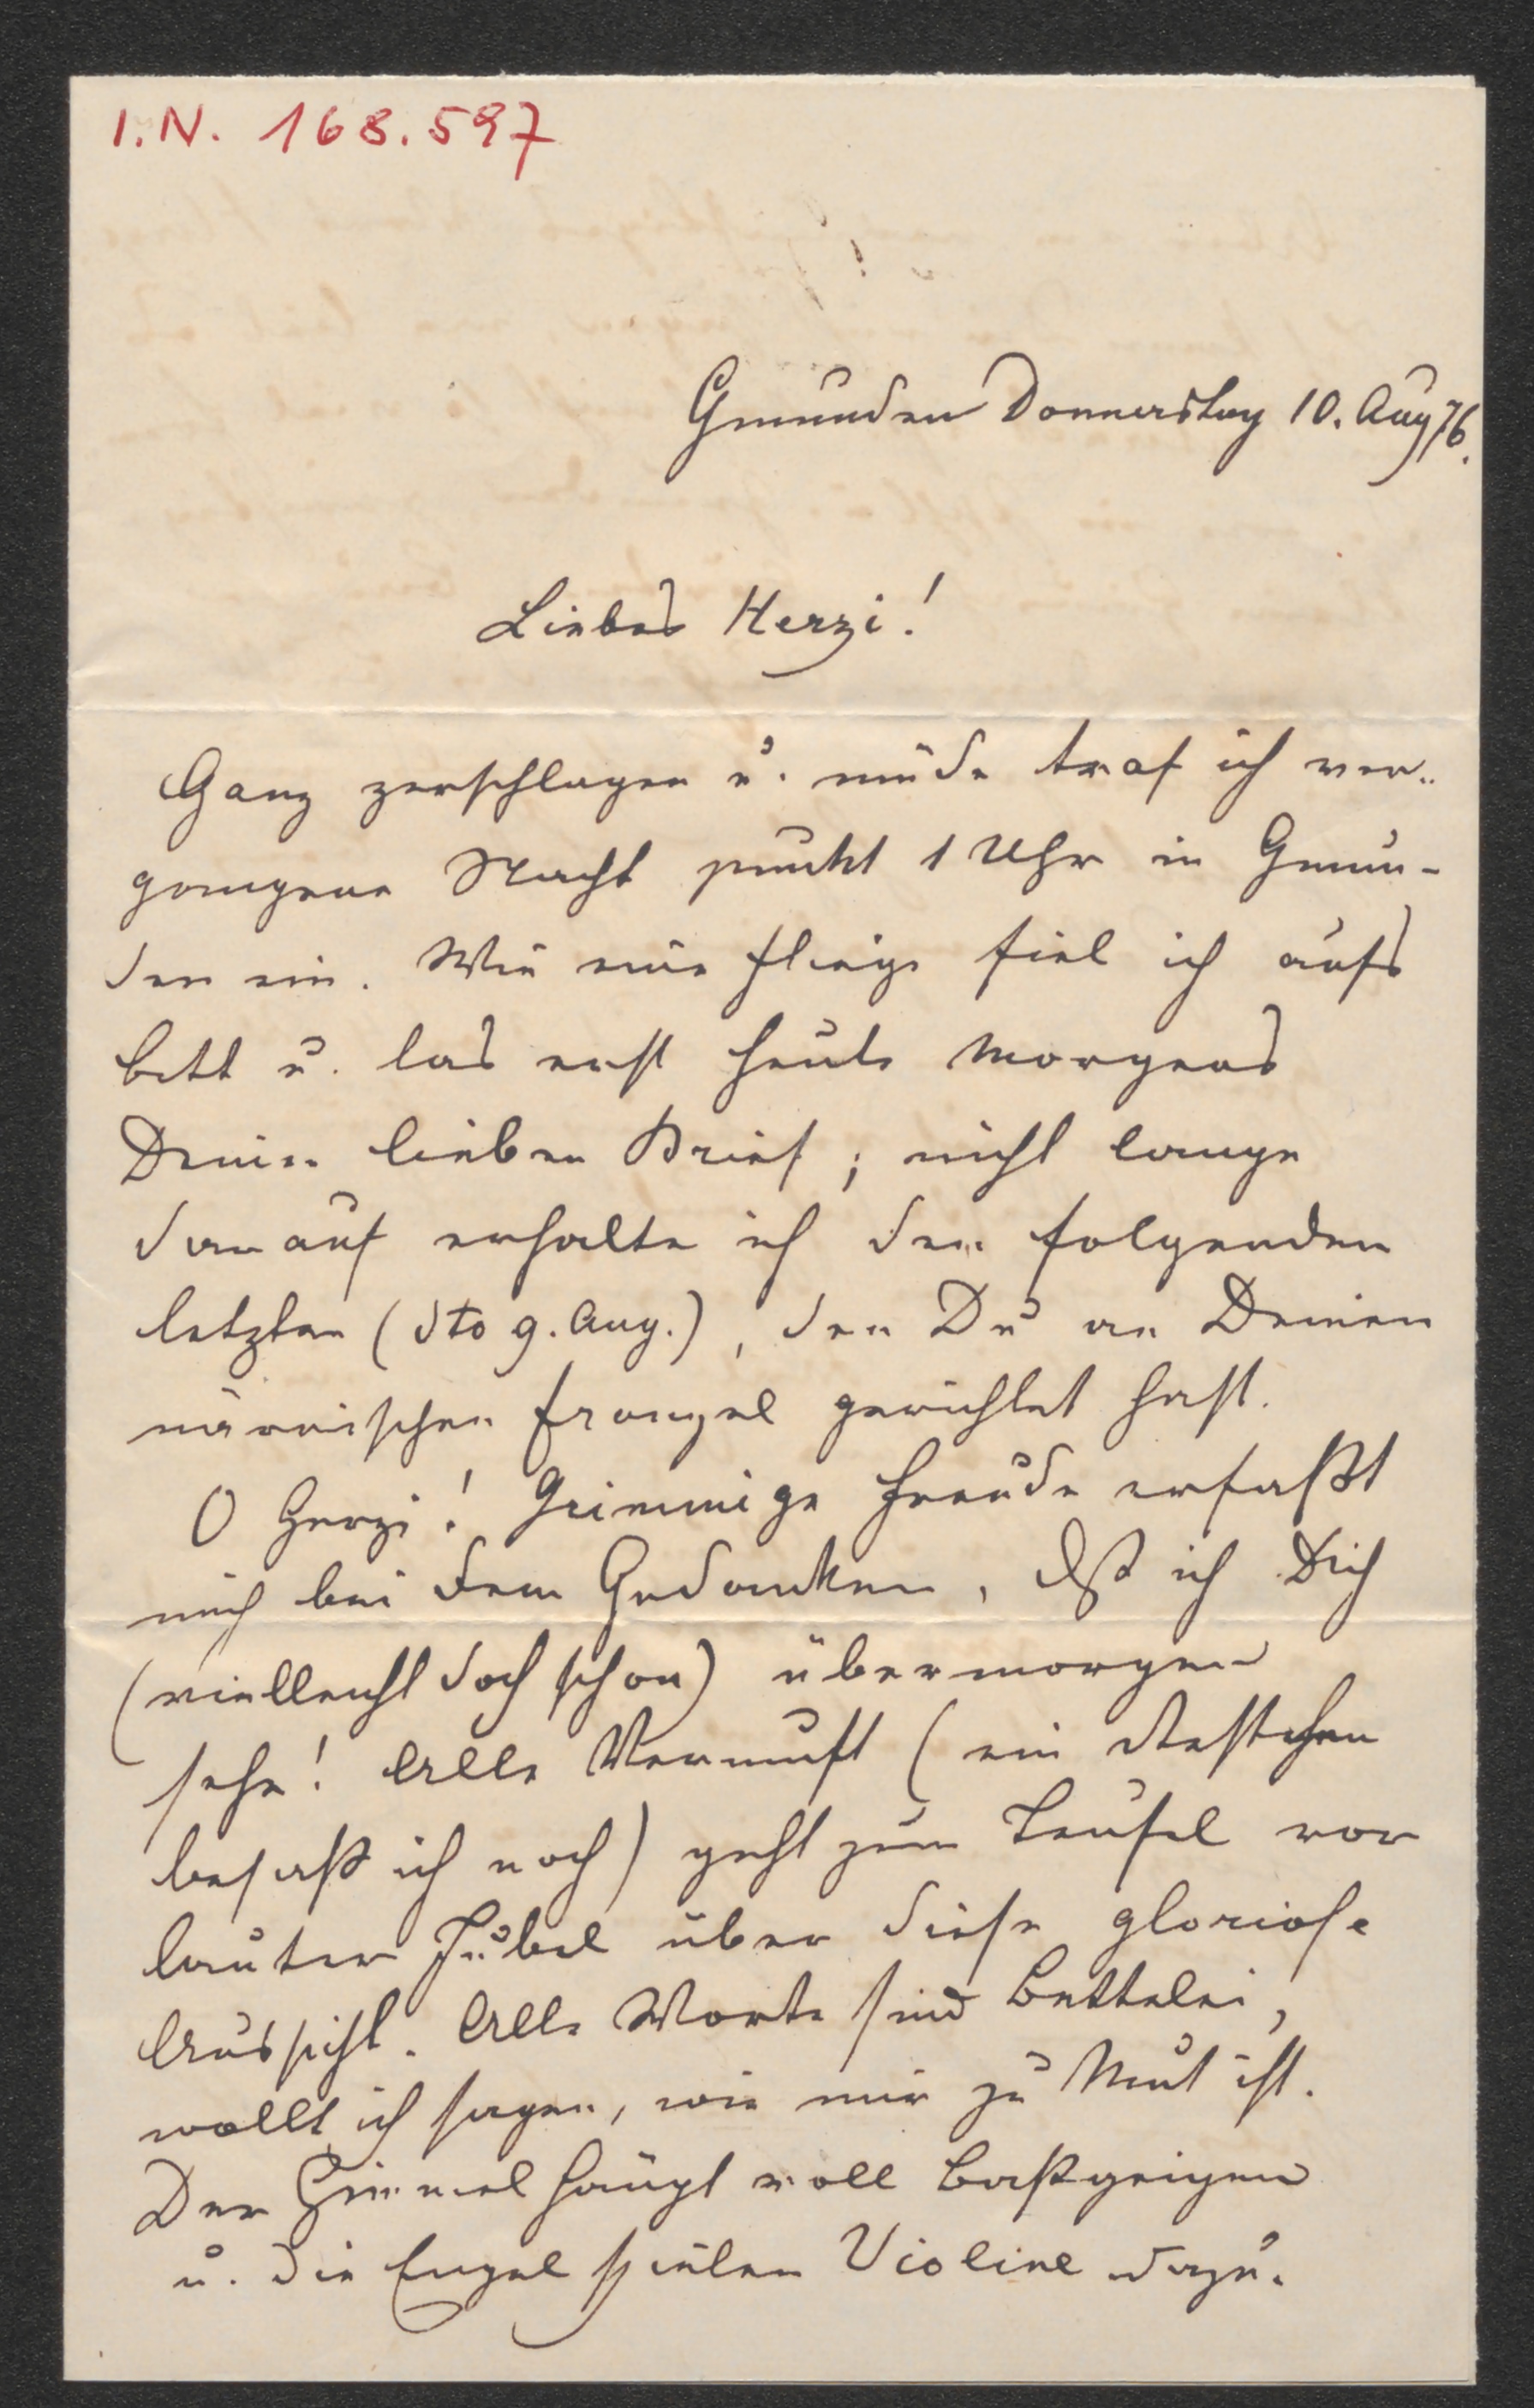 I.N. 168.597
Gmunden Donnerstag 10. Aug 76.
Liebes Herzi!
Ganz zerschlagen u. müde traf ich ver-
gangene Nacht punkt 1 Uhr in Gmun-
den ein. Wie eine Fliege fiel ich aufs
Bett u. las erst heute Morgens
Deinen lieben Brief; nicht lange
darauf erhalte ich den folgenden
letzten (dto 9. Aug.), den Du an Deinen
närrischen Franzel gerichtet hast.
O Herzi! Grimmige Freude erfaßt
mich bei dem Gedanken, dß ich Dich
(vielleicht doch schon) übermorgen
sehe! Alle Vernunft (ein Restchen
besaß ich noch) geht zum Teufel vor
lauter Jubel über diese gloriose
Aussicht. Alle Worte sind Bettelei,
wollt ich sagen, wie mir zu Mut ist.
Der Himmel hängt voll Baßgeigen
u. die Engel spielen Violine dazu.